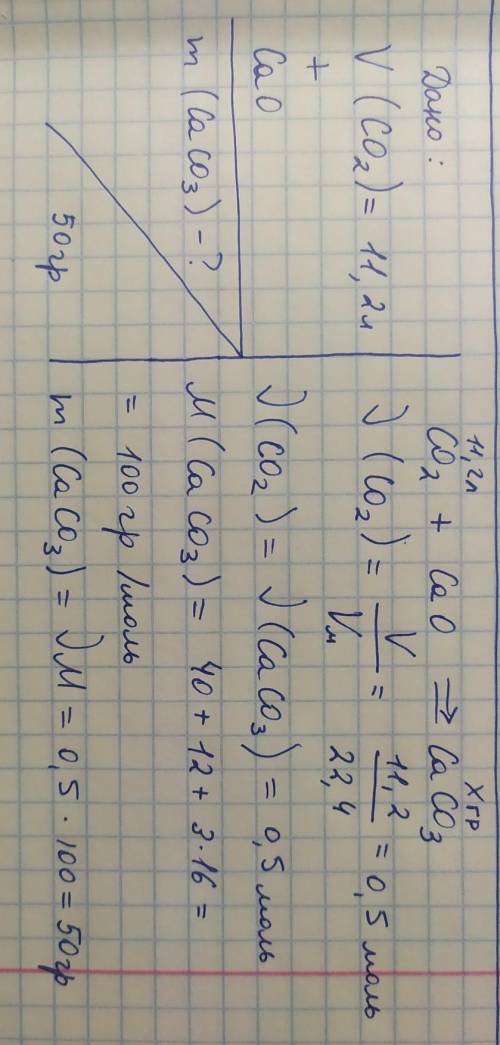 Дано:
V (CO₂) = 11,2л
+
CaO
m (CaCO₃) - ?
50гр
11,2л хгр
CO₂ + CaO ⇒ CaCO₃
ν (CO₂) = V/Vм = 11,2/22,4 = 0,5 моль
ν (CO₂) = ν (CaCO₃) = 0,5 моль
M (CaCO₃) = 40 + 12 + 3·16 =
= 100 гр/моль
m (CaCO₃) = νM = 0,5 · 100 = 50гр